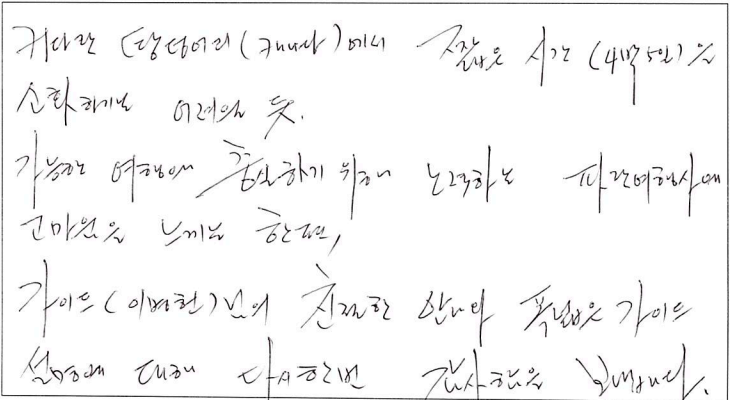 커다란 땅덩어리(캐나다)에서 짧은 시간(4박5일)을
소화하기는 어려울 듯.
가능한 여행에 충실하기 위해 노력하는 파란여행사에
고마움을 느끼는 한편,
가이드(이병헌)님의 친절한 안내와 폭넓은 가이드
설명에 대해 다시한번 감사함을 보냅니다.